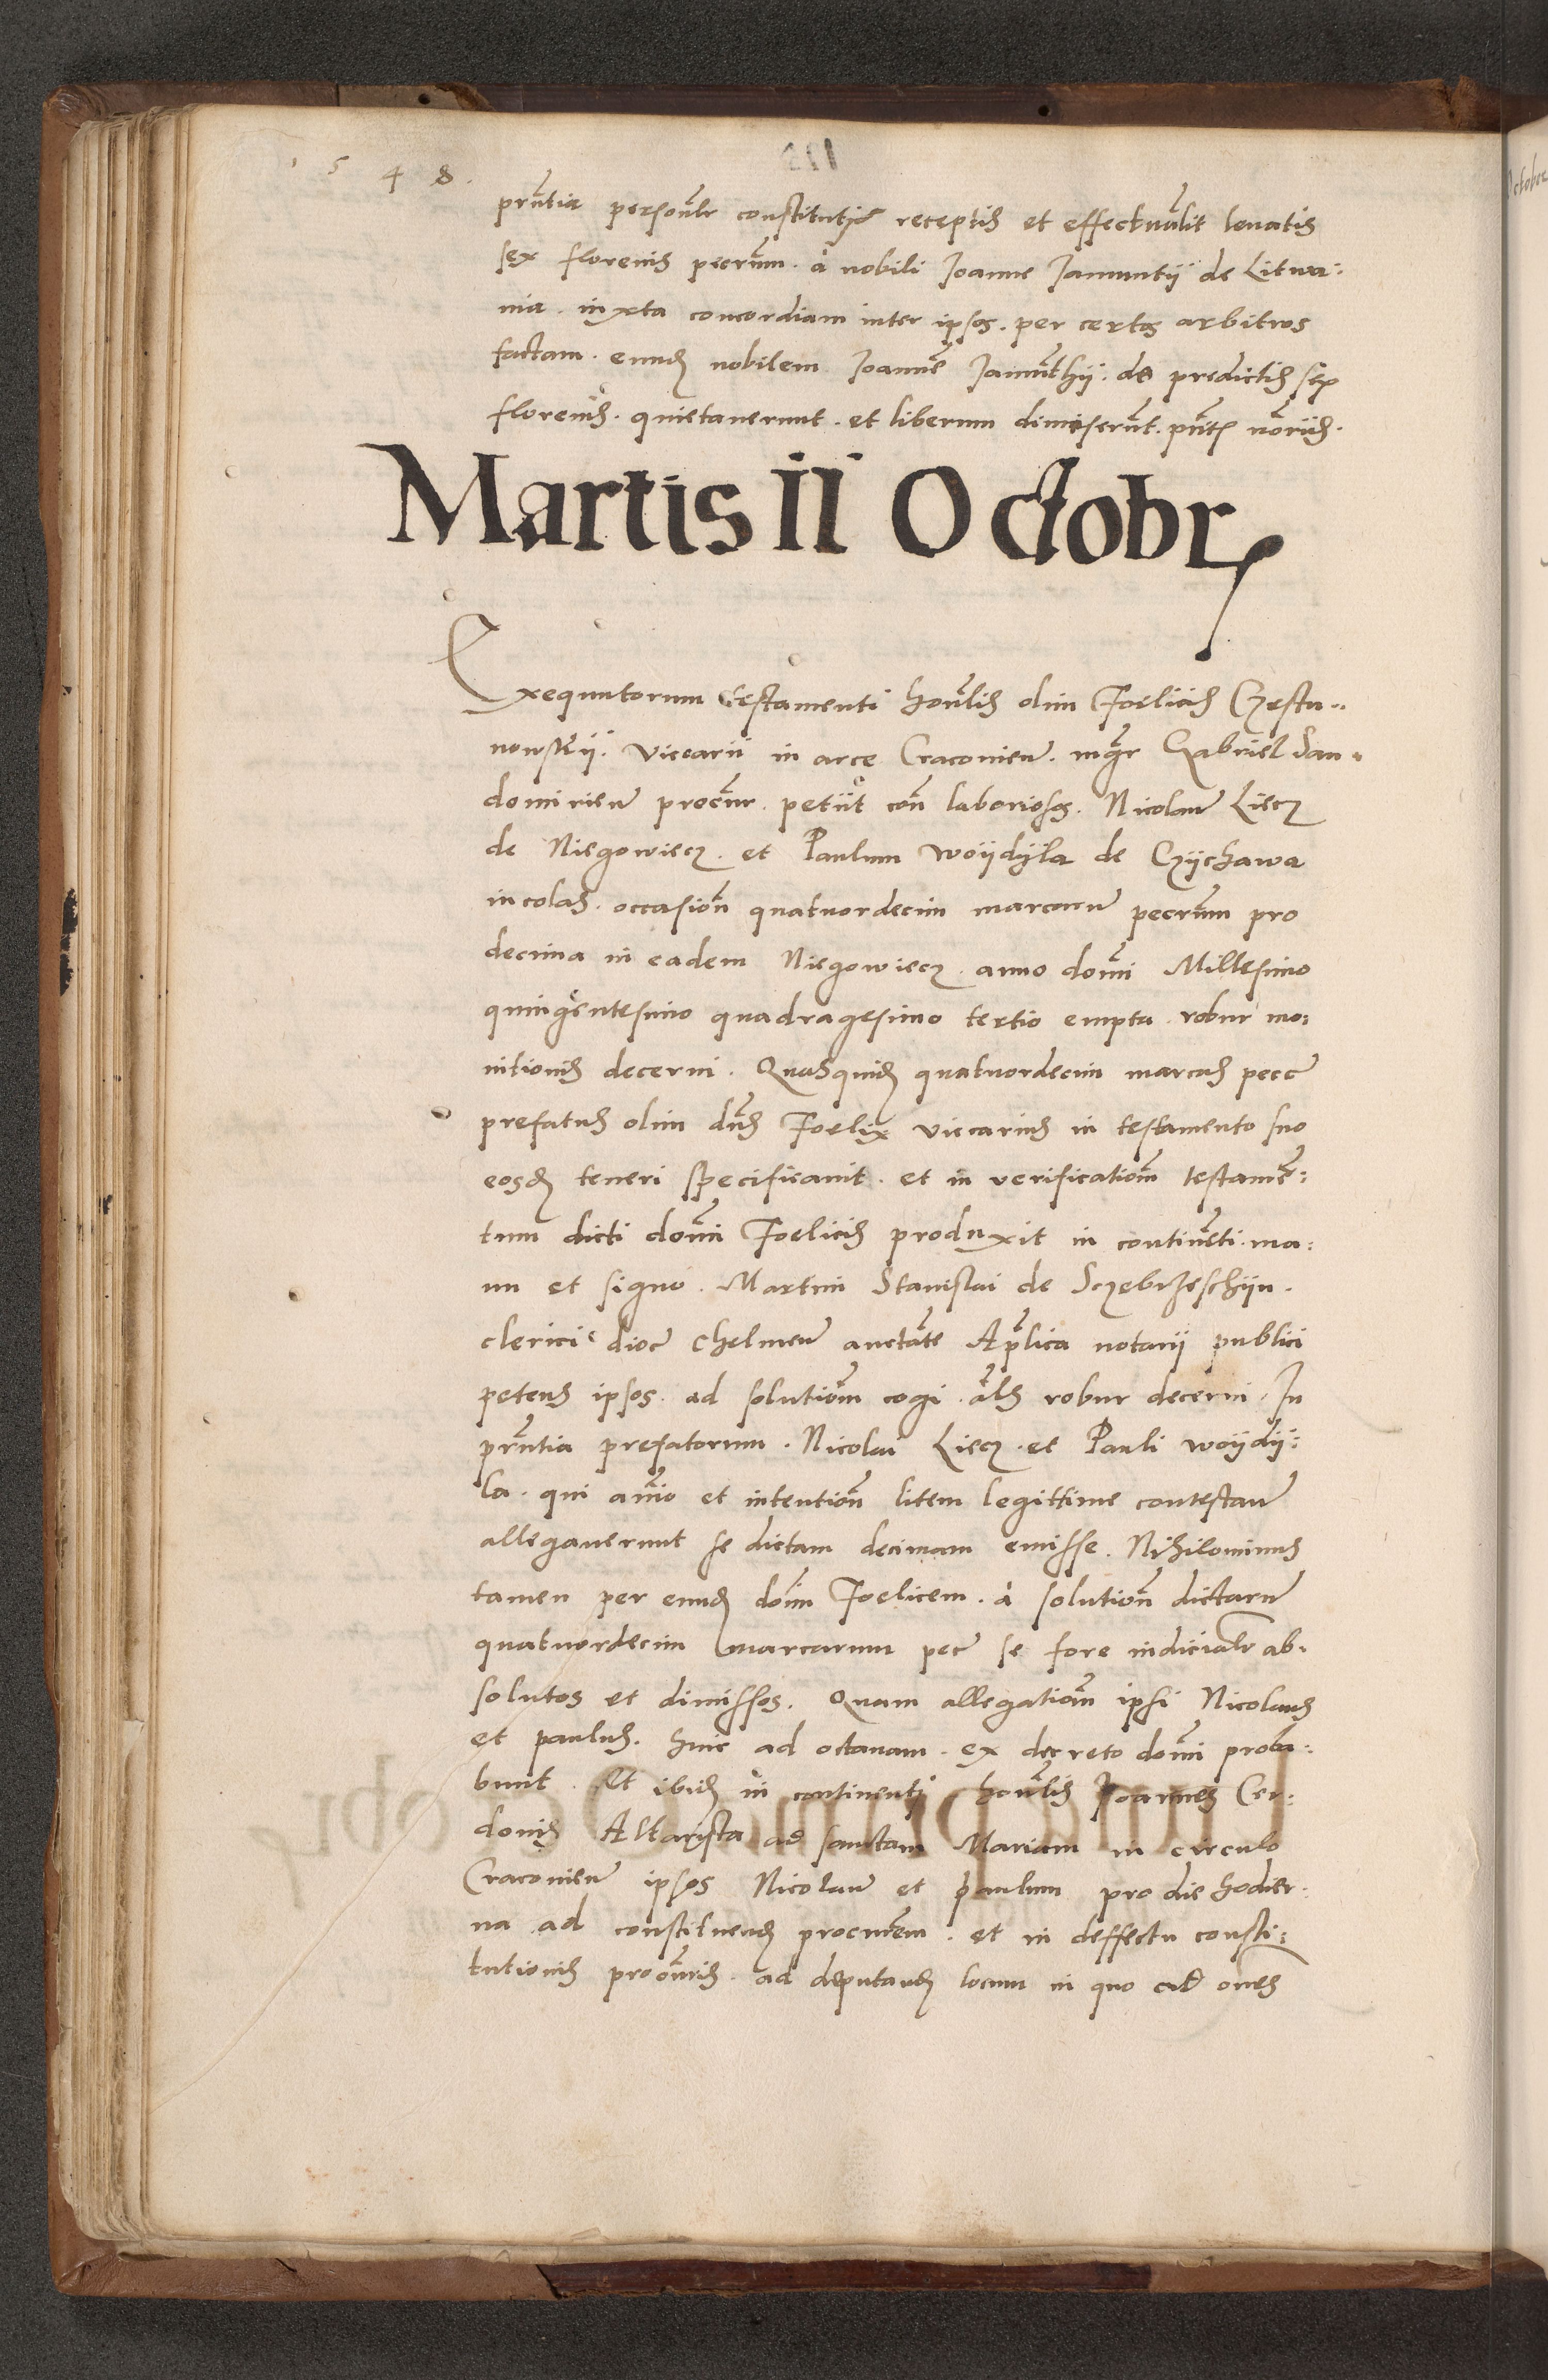 1 5 4 8.
prn̄tia personal̄r constitutis receptis et effectual̄it leuatis
sex florenis pecun̄. a nobili Joanne Jamuntij de Litwa:
nia. iuxta concordiam inter ipsos. per certos arbitros
factam. eund̄ nobilem Joannē Jamunthij. de predictis sex
florenis. quietauerunt. et liberum dimiserūt. prn̄t
Martis II Octobr
Exequutorum testamenti honl̄is olim Foelicis Czestu..
nowskij. viccarii in arce Cracouien̄. mgr̄ Gabriel San.
domirien̄ procūr. petiit con̄ laboriosos. Nicolaum Liecz
de Niegowiecz. et Paulum Woijdijla de Czijchawa
incolas. occasion̄ quatuordecim marcarū pecun̄ pro
decima in eadem Niegowiecz. anno domī Millesimo
quingentesimo quadragesimo tertio empta robur mo:
nitionis decerni. Quasquid̄ quatuordecim marcas pecc̄
prefatus olim dn̄s Foelix viccarius in testamento suo
eosd̄ teneri specificauit. et in verification̄ testamē:
tum dicti domī Foelicis produxit in continēti. ma:
nu et signo. Martini Stanislai de Sczebrzeschijn.
clerici dioc̄ Chelmen̄ auctāte Ap̄lica notarij publici
petens ipsos. ad solutiōm cogi. al̄s robur decerni. In
prn̄tia prefatorum. Nicolai Liecz. et Pauli Woijdij:
la. qui anīo et intention̄ litem legittime contestan̄
allegauerunt se dictam decimam emisse. Nihilominus
tamen per eund̄ dom̄ Foelicem. a solution̄ dictarū
quatuordecim marcarum pec̄ se fore iudicialr̄ ab.
solutos et dimissos. Quam allegatiōm ipsi Nicolaus
et paulus. hinc ad octauam. ex decreto domī proba:
bunt. Et ibid̄ in continenti honl̄is Joannes Cer:
donis Altarista ad sanctam Mariam in circulo
Cracouien̄ ipsos Nicolaum et paulum pro die hodier.
na ad constituend̄ procurēm. et in deffectu consti:
tutionis procūris. ad deputand̄ locum in quo ad omēs